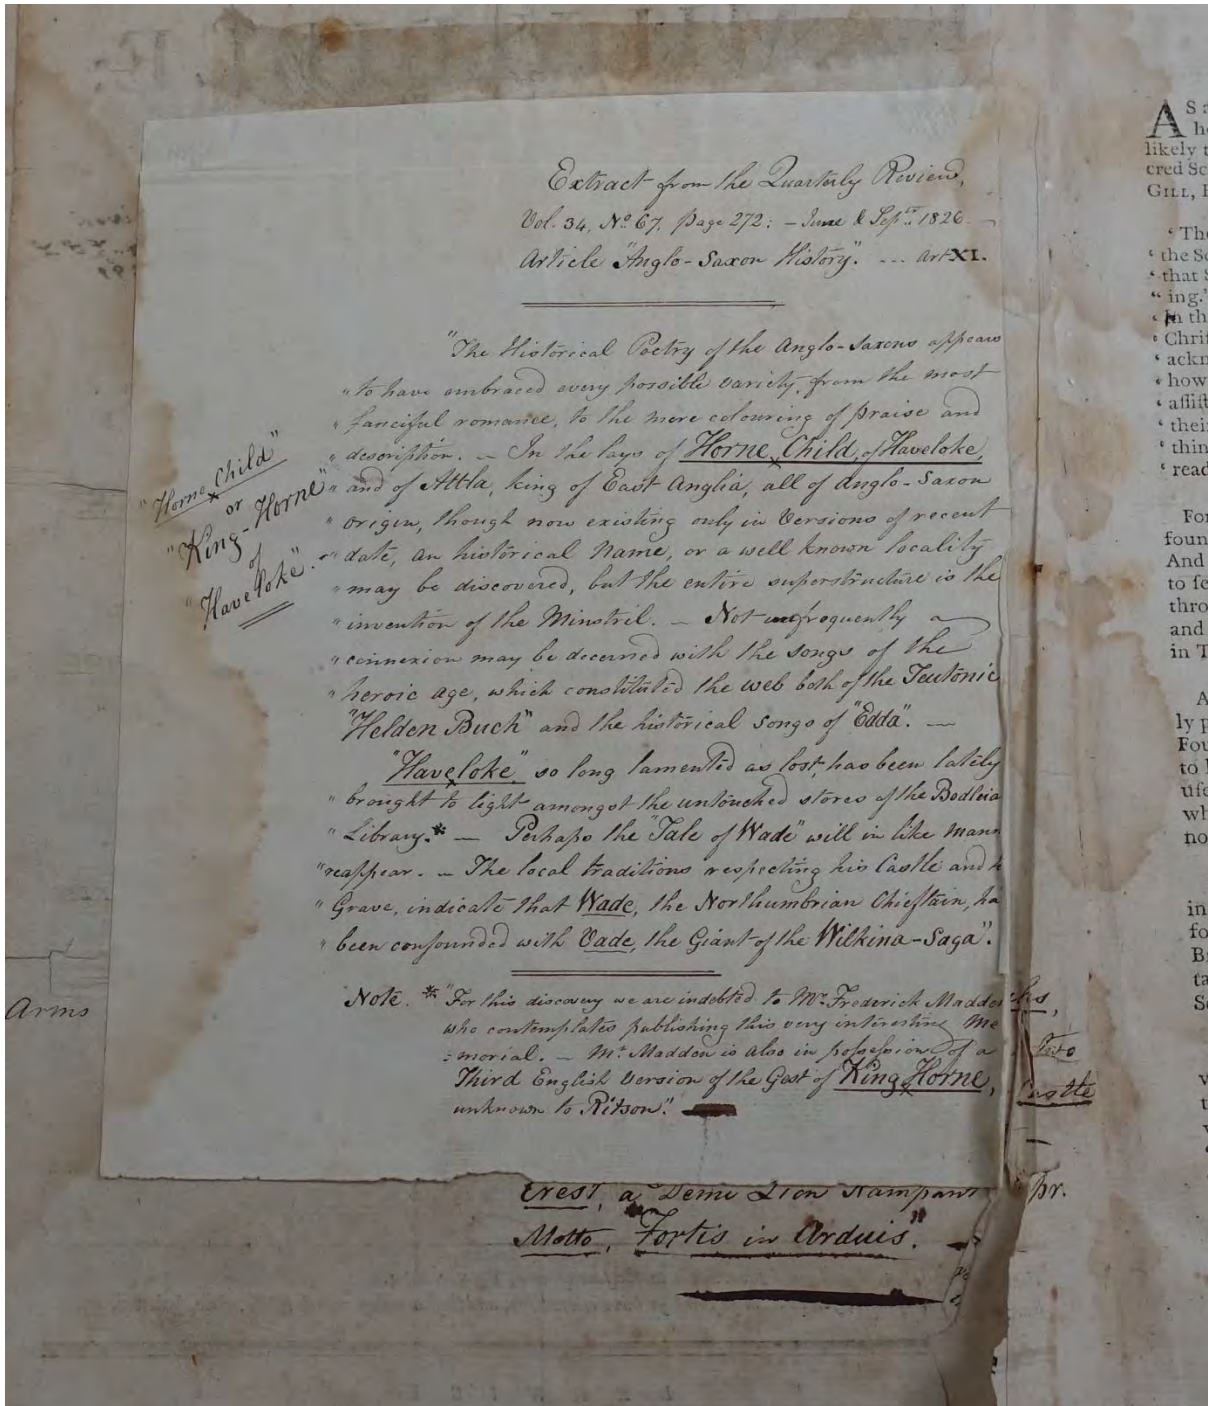 Extract from the Quarterly Review,
Vol. 34, No. 67, page 272: – June & Septr. 1826 –
Article "Anglo-Saxon History". --- Art XI.
"The Historical Poetry of the Anglo-Saxons appears
"to have embraced every possible variety, from the most
"fanciful romance, to the mere colouring of praise and
"description. – In the lays of Horne Child, of Haveloke,
"and of Attla, king of East Anglia, all of Anglo-Saxon
"origin, though now existing only in Versions of recent
"date, an historical Name, or a well known locality
"may be discovered, but the entire superstructure is the
"invention of the Minstril. – Not unfrequently a
"connexion may be decerned with the songs of the
"heroic age, which constituted the web both of the Teutonic
"Helden Buch" and the historical songs of "Edda". –
"Haveloke", so long lamented as lost, has been lately
"brought to light amongst the untouched stores of the Bodleia
"Library.* – Perhaps the "Tale of Wade" will in like mann
"reappear. – The local traditions respecting his Castle and h
"Grave, indicate that Wade, the Northumbrian Chieftain, ha
"been confounded with Vade, the Giant of the Wilkina-Saga".
Note. * "For this discovery we are indebted to Mr. Frederick Madden
who contemplates publishing this very interesting Me
:morial. – Mr. Madden is also in possession of a
Third English Version of the Gest of King Horne,
unknown to Ritson".
"Horne Child"
or
"King-Horne"
of
"Haveloke".
Arms
Castle
Crest, a Demi Lion Rampant pr.
Motto, "Fortis in Arduis".
AS a
h
likely t
cred Sc
GILL,
‘ The
‘ the S
‘ that
“ ing.
‘ In th
‘ Chri
‘ ackn
‘ how
‘ assist
‘ thei
‘ thin
‘ read
For
foun
And
to fe
thro
and
in T
A
ly p
Fou
to
use
wh
no
in
fo
B
ta
S